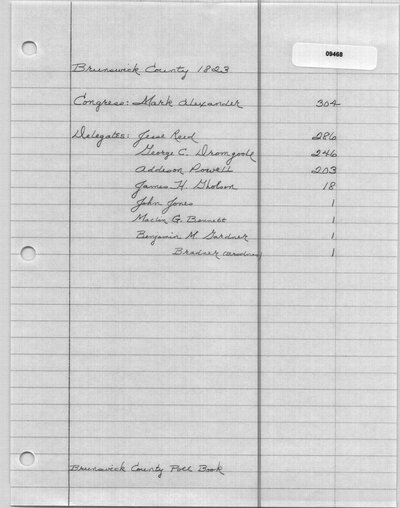 09468
Brunswick County 1823
Congress: Mark Alexander 304
Delegates: Jesse Reed 286
George C. Dromgoole 246
Addeson Powell 203
James H. Gholson 18
John Jones 1
Maclin G. Bennett 1
Benjamin M. Gardner 1
Bradner 1
Brunswick County Poll Book